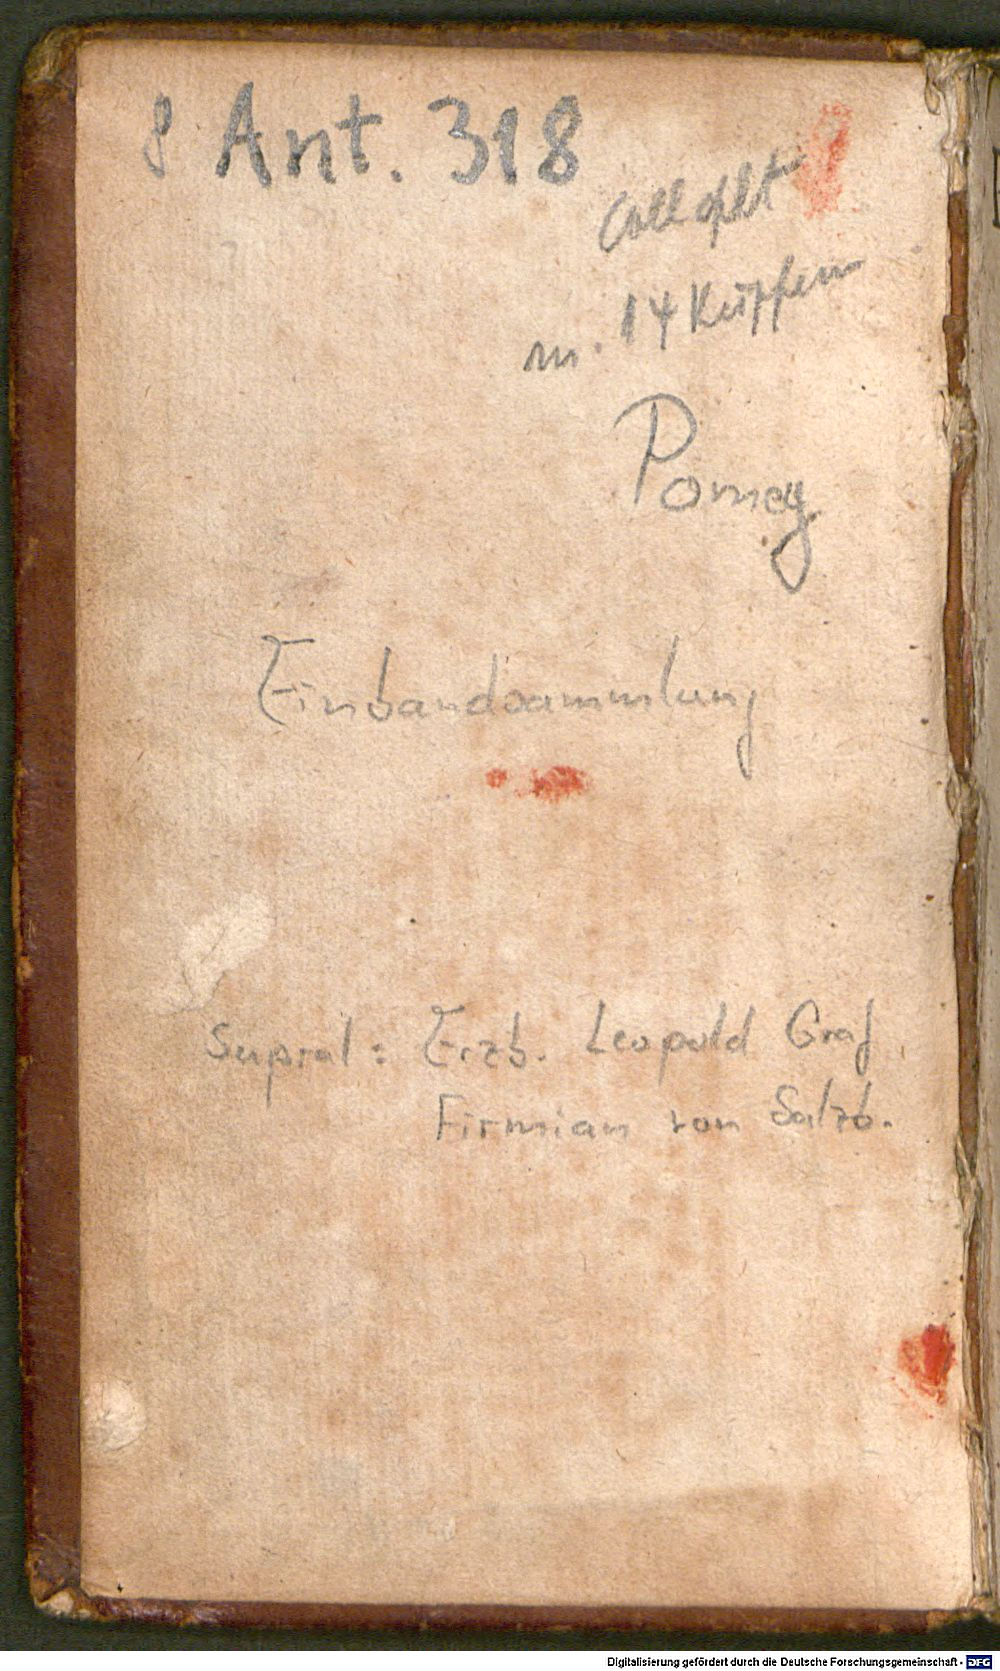 8 Ant. 318
Coll cplt
m. 14 Kupfern
Pomey
Einbandsammlung
Supral: Erzb. Leopold Graf
Firmian von Salzb.
Digitalisierung gefördert durch die Deutsche Forschungsgemeinschaft - DFG